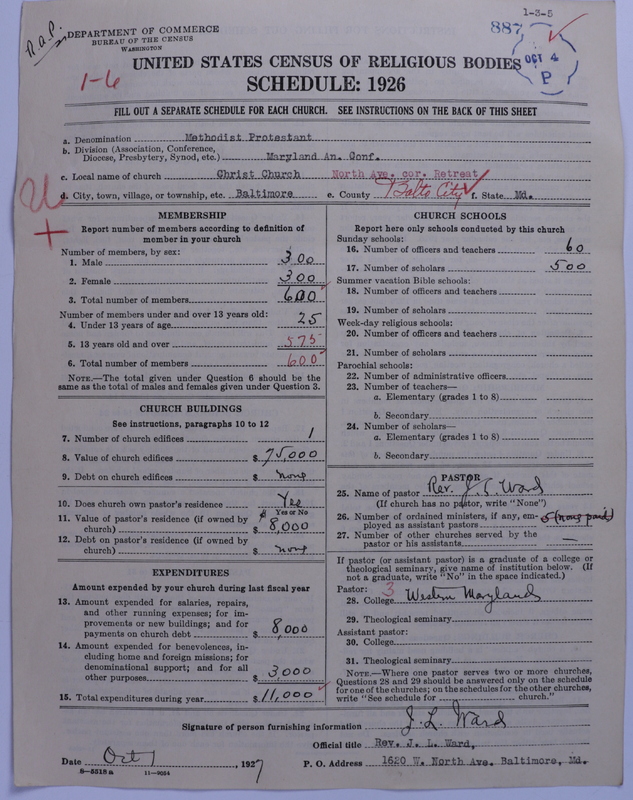 1-3-5
R.a.P.
DEPARTMENT OF COMMERCE
BUREAU OF THE CENSUS
WASHINGTON
887
OCT 4
P
1-6
UNITED STATES CENSUS OF RELIGIOUS BODIES
SCHEDULE: 1926
FILL OUT A SEPARATE SCHEDULE FOR EACH CHURCH. SEE INSTRUCTIONS ON THE BACK OF THIS SHEET
a. Denomination Methodist Protestant
b. Division (Association, Conference,
Diocese, Presbytery, Synod, etc.) Maryland An. Conf.
c. Local name of church Christ Church North Ave. cor. Retreat
d. City, town, village, or township, etc. Baltimore e. County Balto City f. State Md.
MEMBERSHIP
Report number of members according to definition of
member in your church
Number of members, by sex:
1. Male 300
2. Female 300
3. Total number of members 600
Number of members under and over 13 years old:
4. Under 13 years of age 25
5. 13 years old and over 575
6. Total number of members 600
NOTE.—The total given under Question 6 should be the
same as the total of males and females given under Question 3.
CHURCH BUILDINGS
See instructions, paragraphs 10 to 12
7. Number of church edifices 1
8. Value of church edifices $ 75,000
9. Debt on church edifices $ none
10. Does church own pastor's residence Yes
Yes or No
11. Value of pastor's residence (if owned by
church) $ 8,000
12. Debt on pastor's residence (if owned by
church) $ none
EXPENDITURES
Amount expended by your church during last fiscal year
13. Amount expended for salaries, repairs,
and other running expenses; for im-
provements or new buildings; and for
payments on church debt $ 8,000
14. Amount expended for benevolences, in-
cluding home and foreign missions; for
denominational support; and for all
other purposes $ 3000
15. Total expenditures during year $ 11,000
CHURCH SCHOOLS
Report here only schools conducted by this church
Sunday schools:
16. Number of officers and teachers 60
17. Number of scholars 500
Summer vacation Bible schools:
18. Number of officers and teachers
19. Number of scholars
Week-day religious schools:
20. Number of officers and teachers
21. Number of scholars
Parochial schools:
22. Number of administrative officers
23. Number of teachers—
a. Elementary (grades 1 to 8)
b. Secondary
24. Number of scholars—
a. Elementary (grades 1 to 8)
b. Secondary
PASTOR
25. Name of pastor Rev. J. L. Ward
(If church has no pastor, write "None")
26. Number of ordained ministers, if any, em-
ployed as assistant pastors (none paid)
27. Number of other churches served by the
pastor or his assistants —
If pastor (or assistant pastor) is a graduate of a college or
theological seminary, give name of institution below. (If
not a graduate, write "No" in the space indicated.)
Pastor: 3
28. College Western Maryland
29. Theological seminary
Assistant pastor:
30. College
31. Theological seminary
NOTE.—Where one pastor serves two or more churches,
Questions 28 and 29 should be answered only on the schedule
for one of the churches; on the schedules for the other churches,
write "See schedule for church."
Signature of person furnishing information J. L. Ward
Official title Rev. J. L. Ward,
Date Oct 1, 1927 P. O. Address 1620 W. North Ave. Baltimore, Md.
8—5518a 11—9054